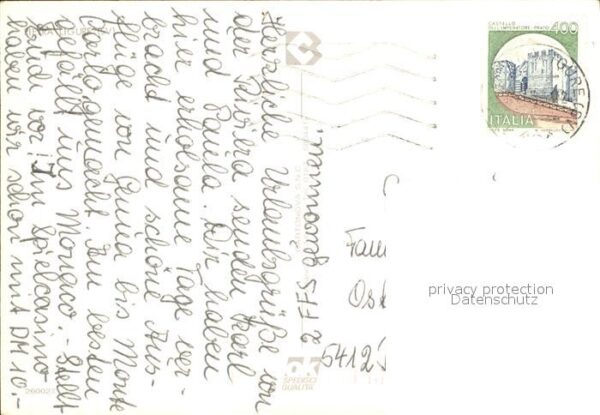 Herzliche Urlaubsgrüße von
der Riviera senden Karl
und Paula. Wir haben
hier erholsame Tage ver-
bracht und schöne Aus-
flüge von Genua bis Monte
Carlo gemacht. Am besten
gefällt uns Monaco. - Stellt
Euch vor! Im Spielcasino
haben wir schon mit DM 10-
2 FFS gewonnen.
CASTELLO
DELL'IMPERATORE - PRATO
400
ITALIA
Fam
Ost
5412
privacy protection
Datenschutz
OK
SPEDISCI
QUALITÀ